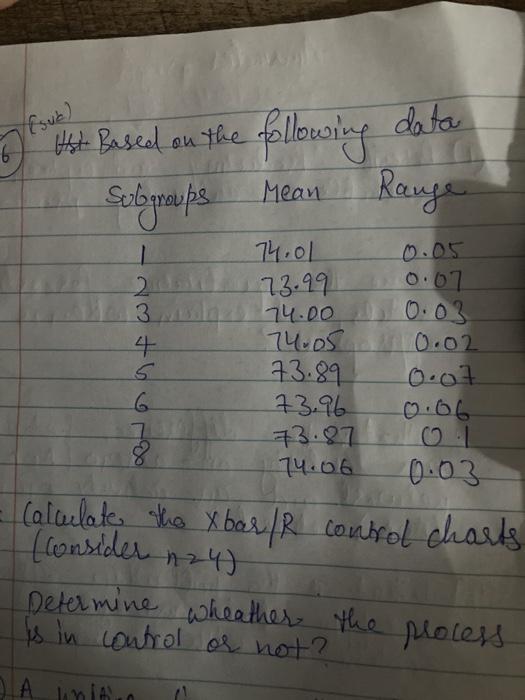 (sub)
6 Based on the following data
Subgroups Mean Range
1 74.01 0.05
2 73.99 0.07
3 74.00 0.03
4 74.05 0.02
5 73.89 0.07
6 73.96 0.06
7 73.87 0.1
8 74.06 0.03
Calculate the Xbar/R control charts
(Consider n=4)
Determine wheather the process
is in control or not?
A